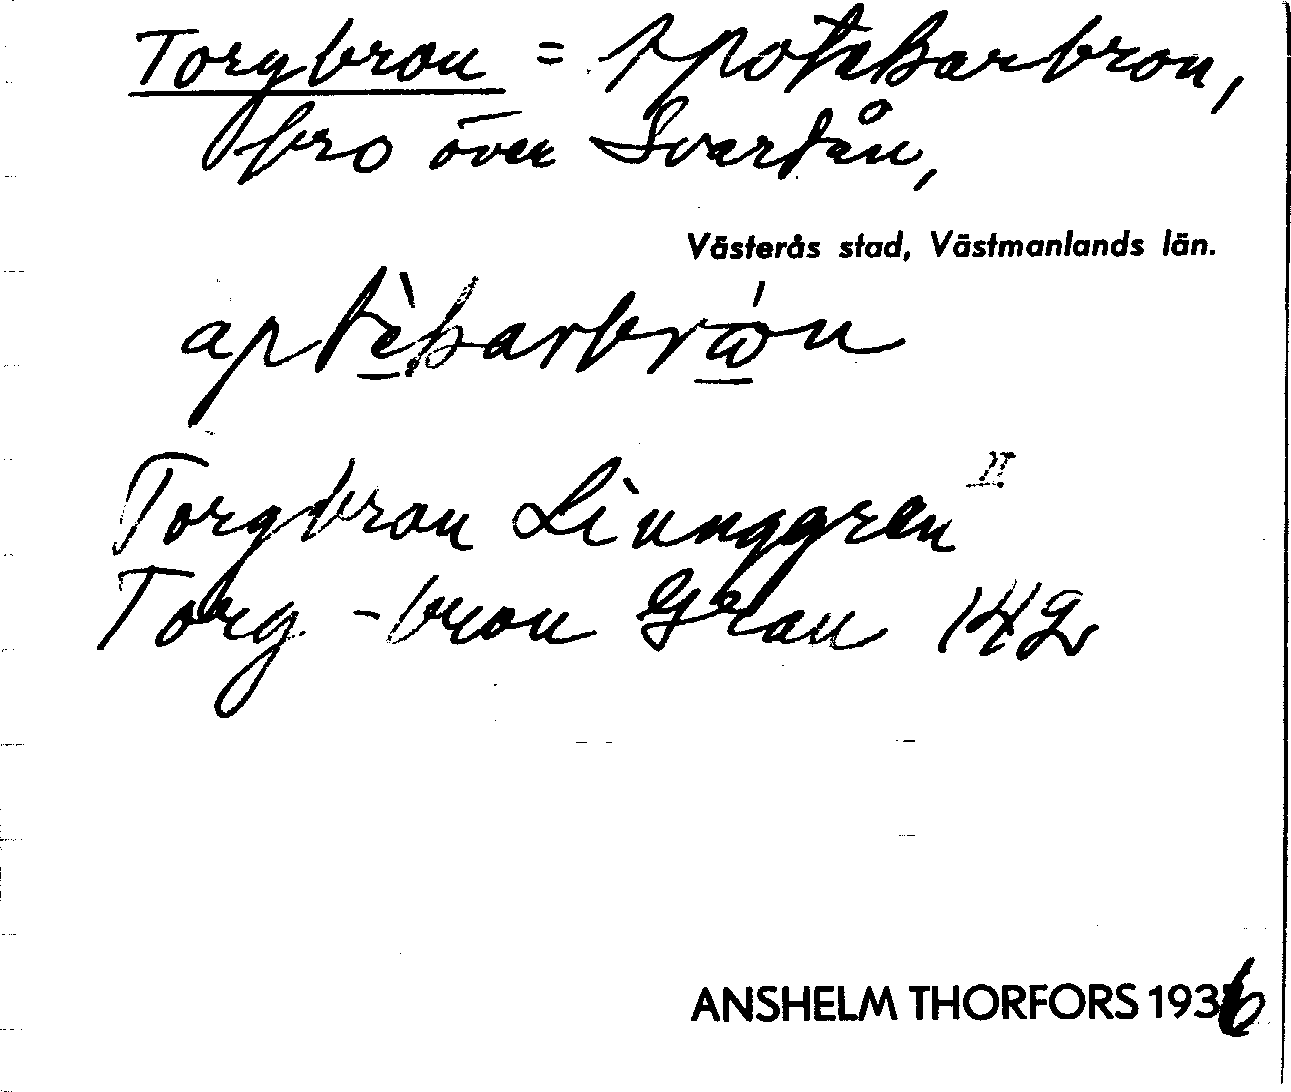 Torgbron = Apotekarbron,
bro över Svartån,
Västerås stad, Västmanlands län.
aptèkarbrón
Torgbron Ljunggren II
Torg-bron Grau 142
ANSHELM THORFORS 1936